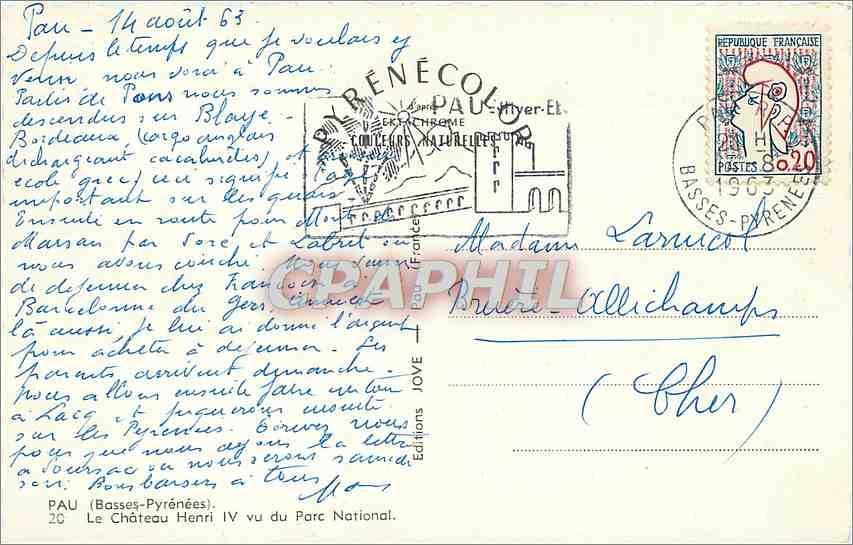 Pau - 14 août 63
Depuis le temps que je voulais y
venir, nous voici à Pau.
Partis de Pons nous sommes
descendus sur Blaye -
Bordeaux, (cargo anglais
déchargeant cacahuètes) et
école grec) ceci signifie
important sur les quais
Ensuite en route pour Mont de
Marsan par Sore et Labrit où
nous avons couché. Nous
de déjeuner chez François à
Barcelonne du Gers
là aussi, je lui ai donné l'argent
pour acheter à déjeuner. Les
parents arrivent dimanche.
Nous allons ensuite faire un tour
à Lacq et ensuite
sur les Pyrénées. Ecrivez nous
pour que nous ayons la lettre
à où nous serons samedi
soir. Bons baisers à tous
PAU (Basses-Pyrénées).
20 Le Château Henri IV vu du Parc National.
PYRÉNÉCOLOR
d'après
EKTACHROME
COULEURS NATURELLES
PAU Hiver-Été
Editions JOVE — Pau (France)
CPAPHIL
RÉPUBLIQUE FRANÇAISE
POSTES 0,20
20 H
-8
1963
BASSES-PYRENEES
Madame Larnicol
Bruère-Allichamps
(Cher)